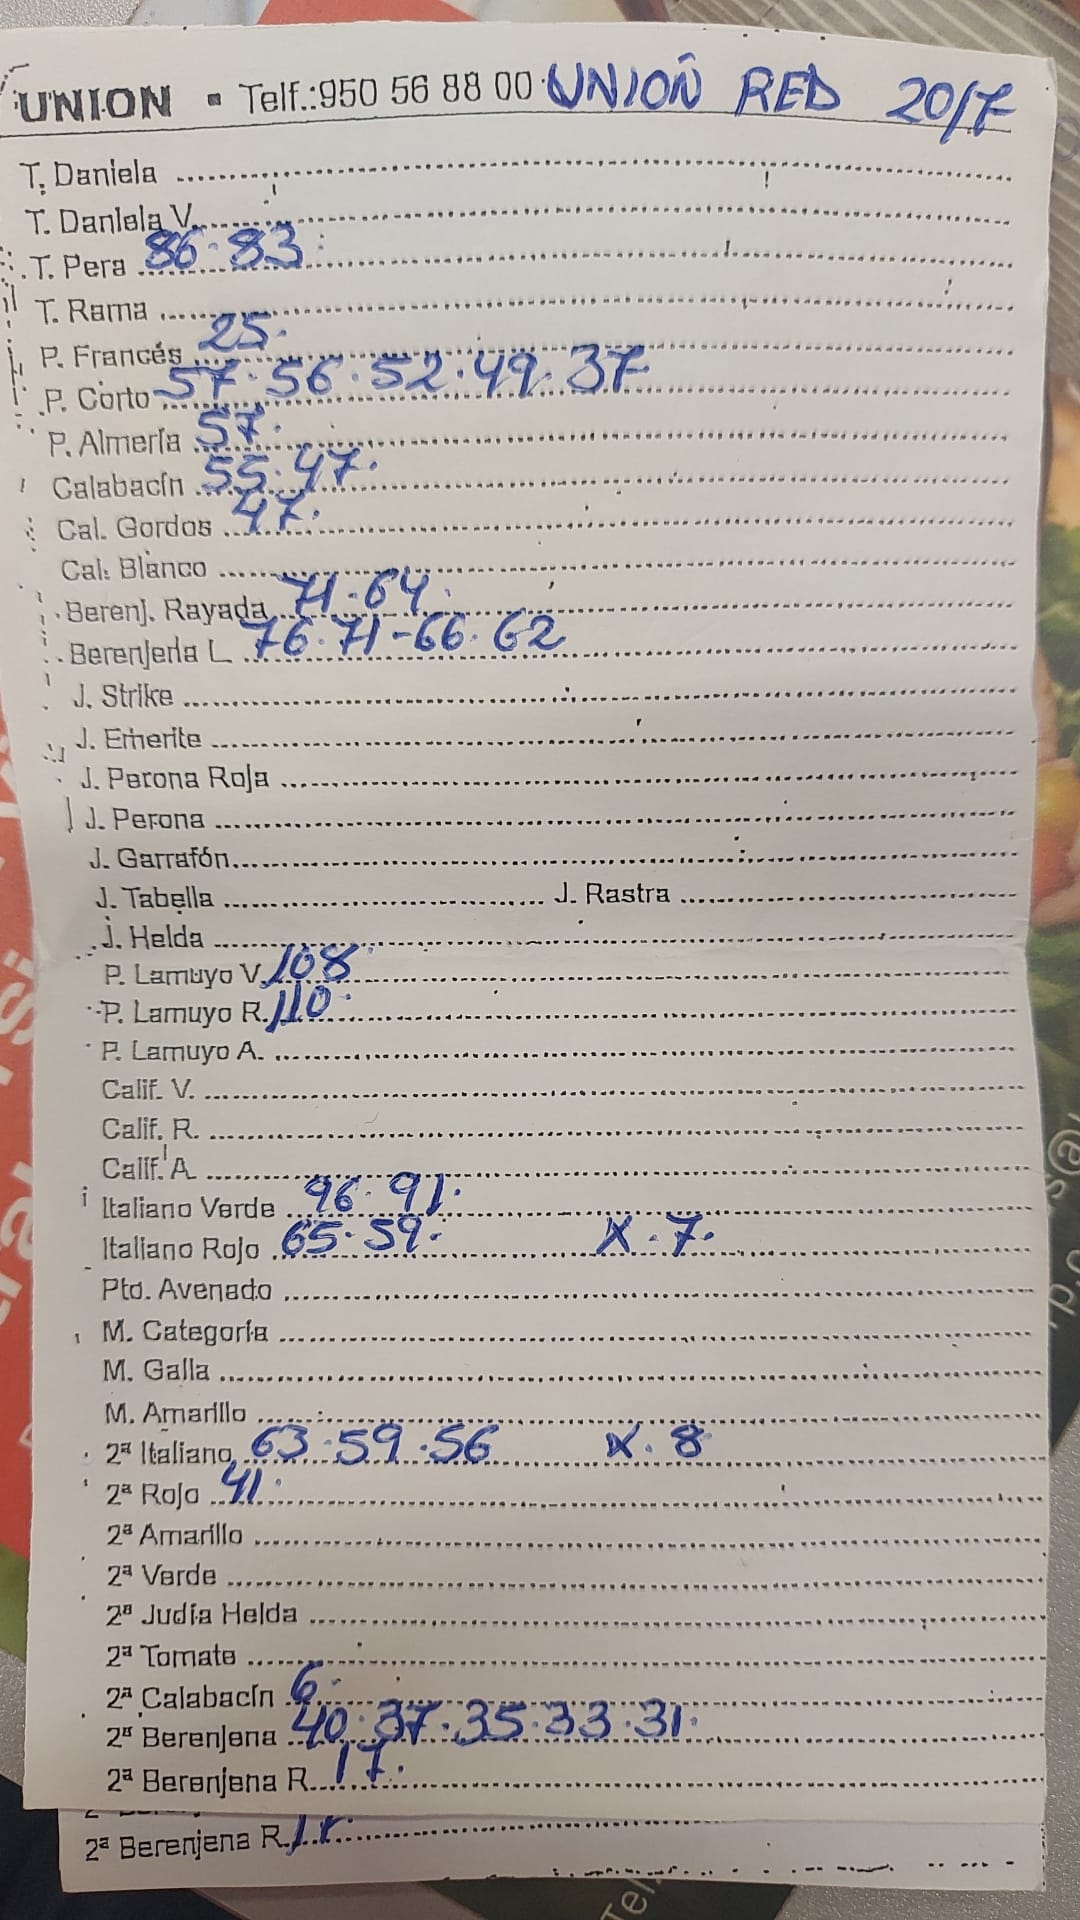 UNION ▪ Telf.:950 56 88 00 UNIOÑ RED 20/7
T. Daniela
T. Daniela V.
T. Pera 86·83
T. Rama
P. Francés 25.
P. Corto 57·56·52·49·37
P. Almería 57.
Calabacín 55·47.
Cal. Gordos 47.
Cal. Blanco
Berenj. Rayada 71·64.
Berenjena L 76·71-66·62
J. Strike
J. Emerite
J. Perona Roja
J. Perona
J. Garrafón
J. Tabella J. Rastra
J. Helda
P. Lamuyo V. 108
P. Lamuyo R. 110
P. Lamuyo A.
Calif. V.
Calif. R.
Calif. A
Italiano Verde 96·91.
Italiano Rojo 65·59. X·7.
Pto. Avenado
M. Categoría
M. Galia
M. Amarillo
2ª Italiano 63·59·56 X·8
2ª Rojo 41.
2ª Amarillo
2ª Verde
2ª Judía Helda
2ª Tomate
2ª Calabacín 6.
2ª Berenjena 40·37·35·33·31.
2ª Berenjena R. 17.
2ª Berenjena R.